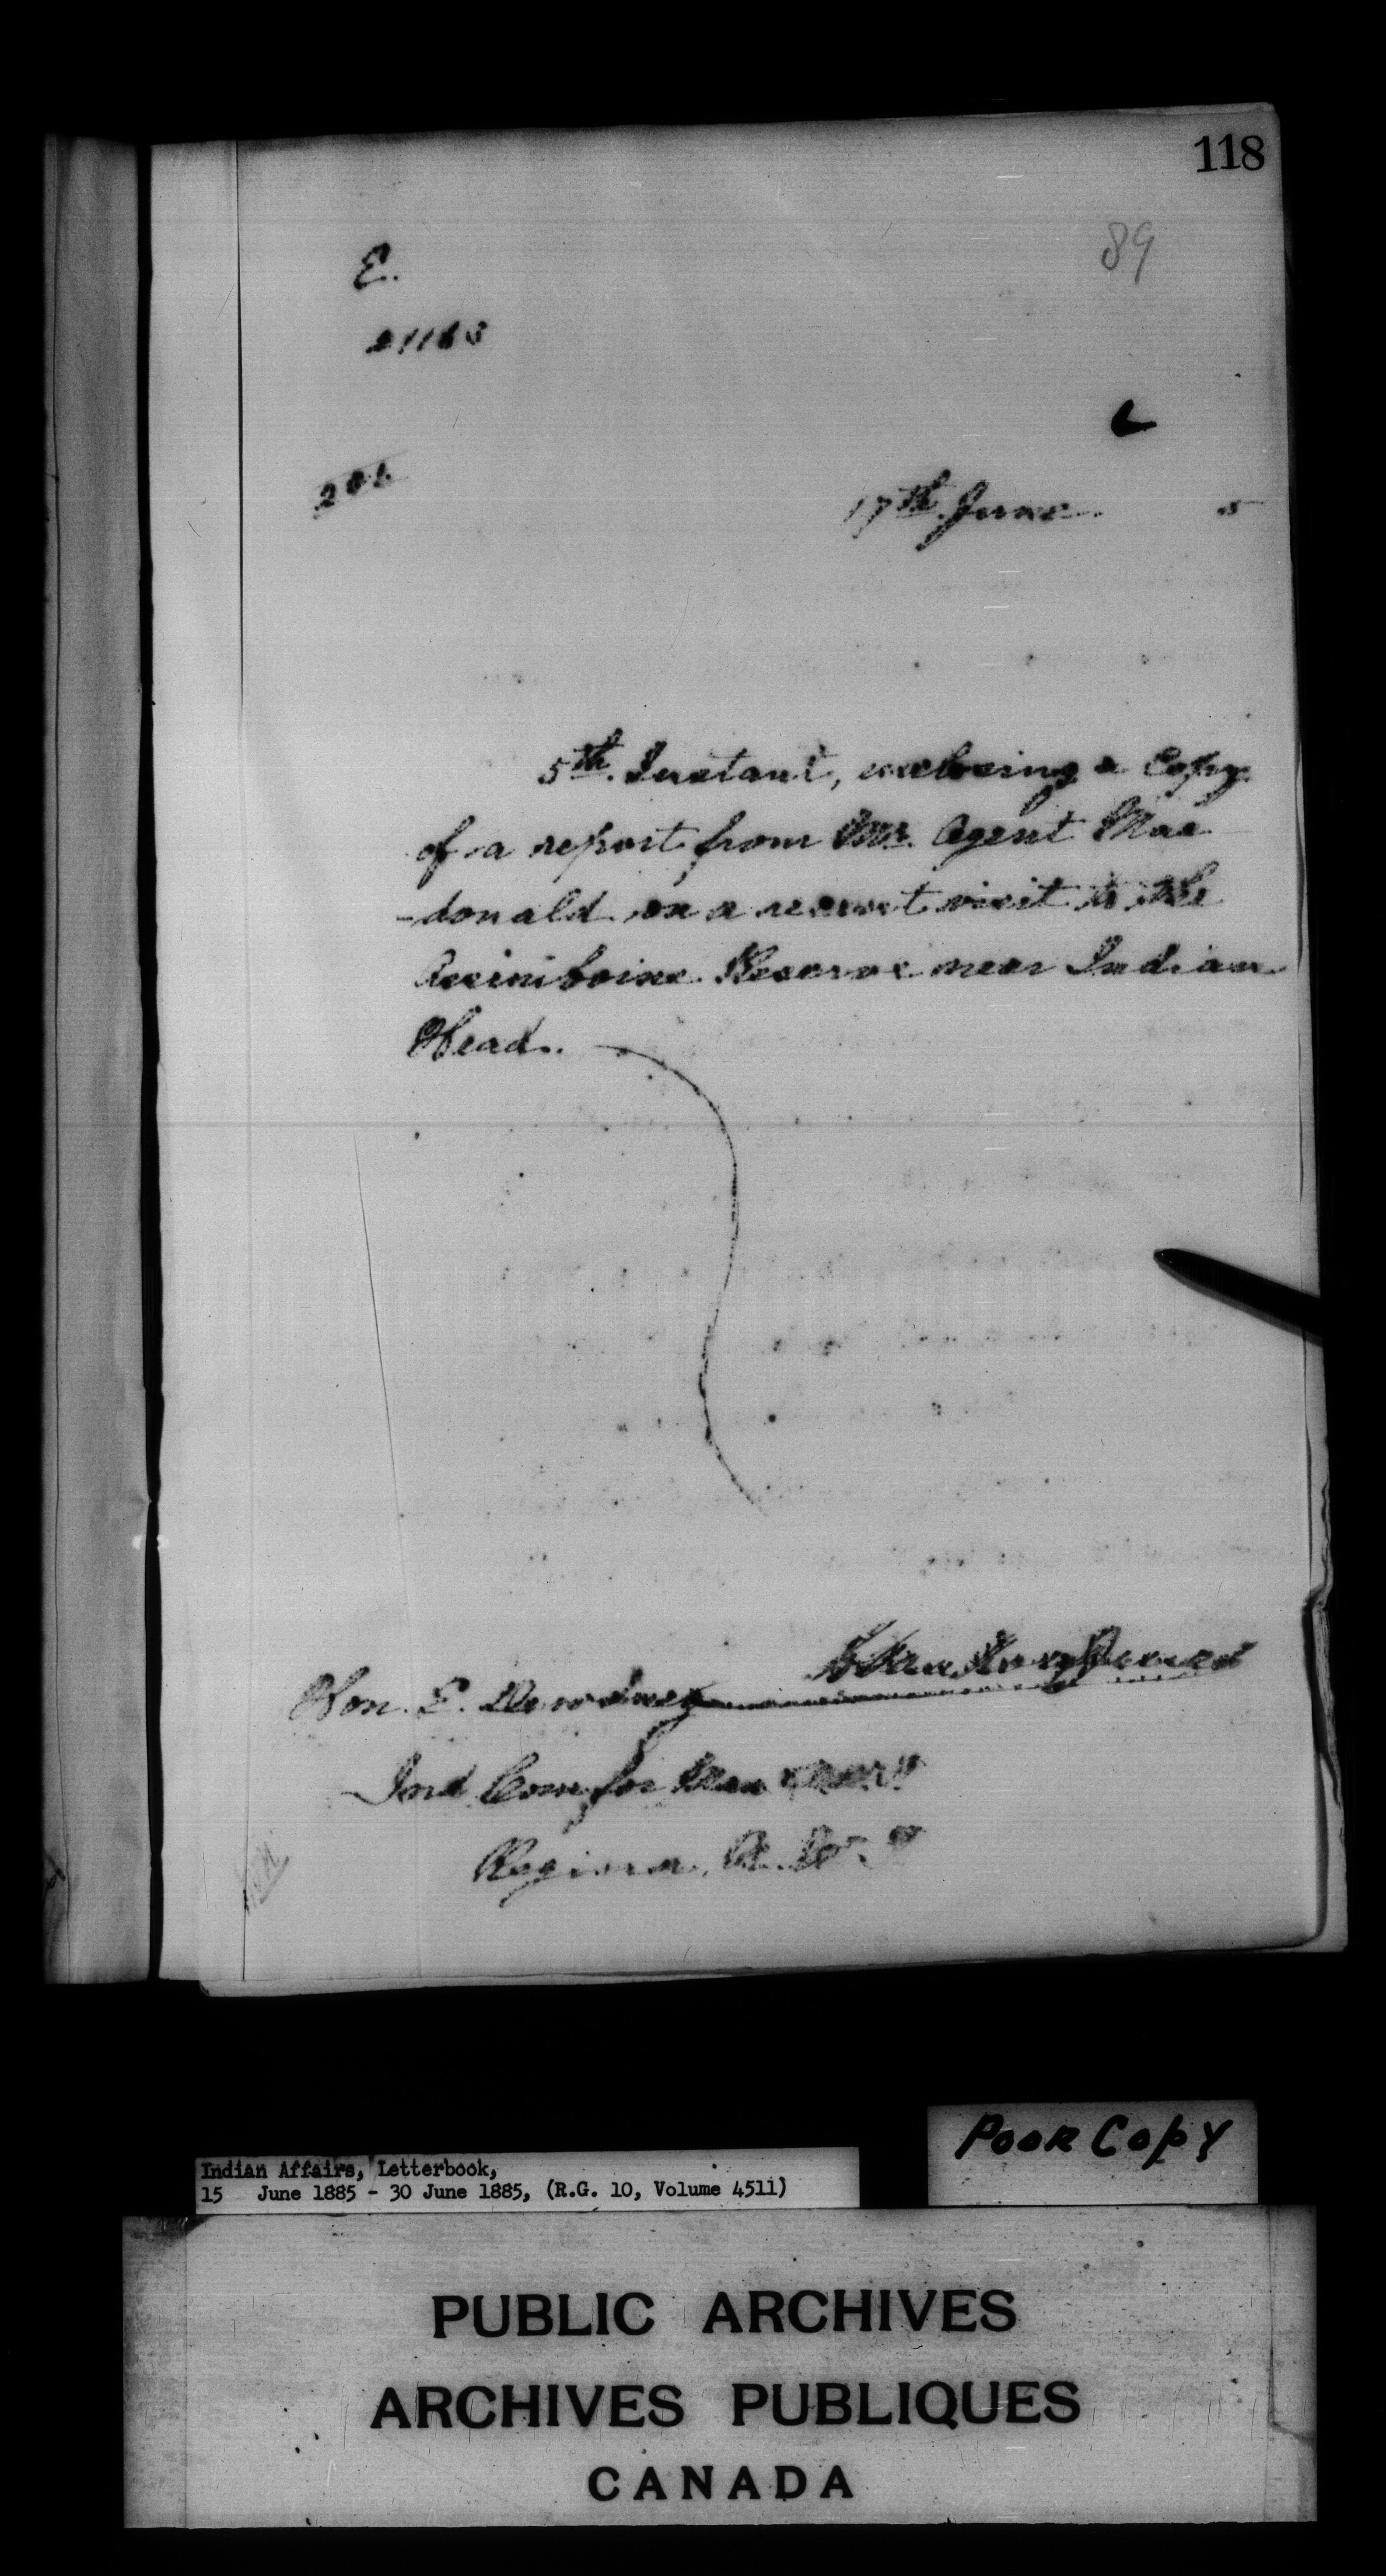 118
89
E.
21163
17th June 5
5th Instant, enclosing a Copy
of a report from Mr. Agent Mac
-donald on a recent visit to the
Assiniboine Reserve near Indian
Head.
Hon. E. Dewdney
Ind Com for Man
Regina
Poor Copy
Indian Affairs, Letterbook,
15 June 1885 - 30 June 1885, (R.G. 10, Volume 4511)
PUBLIC ARCHIVES
ARCHIVES PUBLIQUES
CANADA